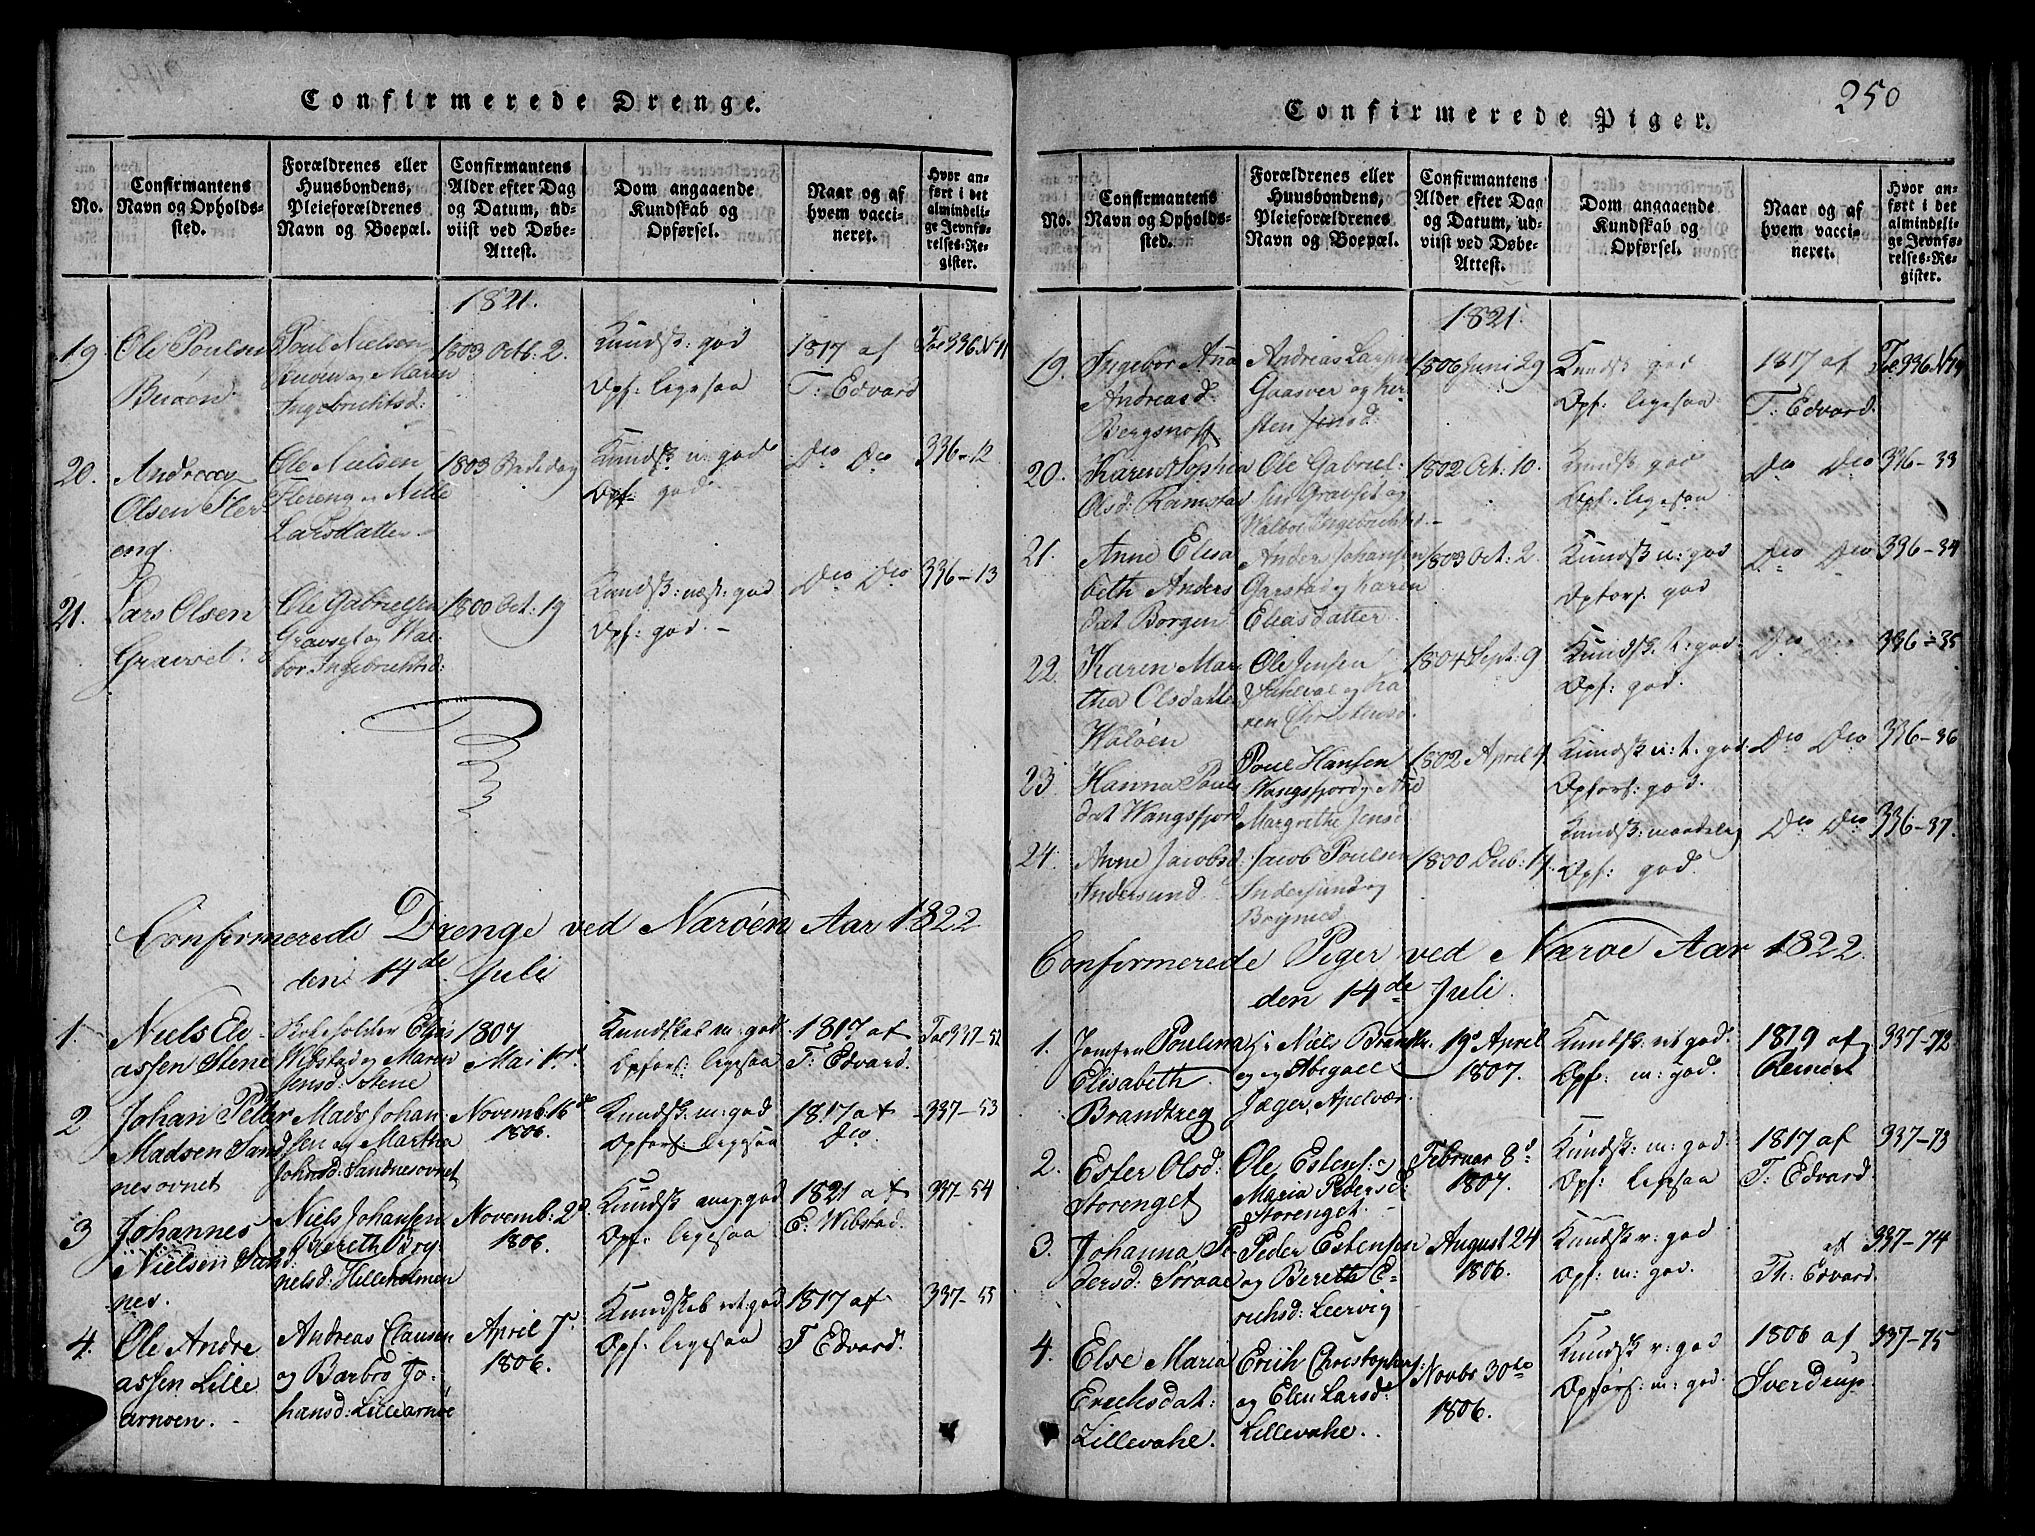 Confirmerede Drenge.
No.
Confirmantens
Navn og Opholds-
sted.
Forældrenes eller
Huusbondens,
Pleieforældrenes
Navn og Boepæl.
Confirmantens
Alder efter Dag
og Datum, ud-
viist ved Døbe-
Attest.
Dom angaaende
Kundskab og
Opførsel.
Naar og af
hvem vacci-
neret.
Hvor an-
ført i det
almindeli-
ge Jevnfø-
relses-Re-
gister.
1821.
19.
Ole Poulsen
Poul Nielsen
og Maren
Ingebrichtsd:
1803 Octb: 2.
Kundsk: god
Opf: ligesaa
1817 af
T: Edvard
Fol 336 N 11
20.
Andreas
Olsen Fler
eng.
Ole Nielsen
Flereng og Nille
Larsdatter
1803
Kundsk: n: god
Opf: god
Do Do
336-12
21.
Lars Olsen
Gravset.
Ole Gabrielsen
Gravset og Wal-
bor Ingebrichtsd:
1800 Oct: 19
Kundsk: næst: god
Opf: god. -
Do Do
336-13
Confirmerede Drenge ved Nærøen Aar 1822
den 14de Juli
1.
Niels Eli-
assen Stene
Skoleholder Elias
Wibstad og Maren
Jensd: Stene
1807
Mai 1ste
Kundskab m: god
Opførs: ligesaa
1817 af
T: Edvard.
Fol 337-52
2
Johan Petter
Madsen Sand
nesovnet
Mads Johan
sen og Martha
Johnsd: Sandnesovnet
Novemb: 16de
1806.
Kundsk: m: god
Opførs: ligesaa
1817 af
Do.
337-53
3
Johannes
Nielsen Sand
nes.
Niels Johansen
Bereth
nelsd: Hilleholmen
Novemb: 2d
1806.
Kundsk god
Opf: ligesaa
1821 af
E: Wibstad.
337-54
4.
Ole Andre
assen Lille
arnøen.
Andreas Clausen
og Barbro Jo-
hansd: Lillearnøe
April 7de
1806.
Kundskab god
Opf: ligesaa
1817 af
T Edvard.
337-55
250
Confirmerede Piger.
No.
Confirmantens
Navn og Opholds-
sted.
Forældrenes eller
Huusbondens,
Pleieforældrenes
Navn og Boepæl.
Confirmantens
Alder efter Dag
og Datum, ud-
viist ved Døbe-
Attest.
Dom angaaende
Kundskab og
Opførsel.
Naar og af
hvem vacci-
neret.
Hvor an-
ført i det
almindeli-
ge Jevnfø-
relses-Re-
gister.
1821.
19.
Ingebor Ana
Andreasd:
Bergsnoff
Andreas Larsen
Gaasver og Kir-
sten Jensd:
1806 Juni 29
Kundsk: god
Opf: ligesaa
1817 af
T: Edvard.
20.
Karen Sophia
Olsd: Ramstad
Ole Gabriel-
sen Gravset og
Walbor Ingebrichtsd. -
1802 Oct: 10.
Kundsk god
Opf: ligesaa
Do Do
336-33
21.
Anne Elisa
beth Anders
dat Borgen
Anders Johansen
Garstad og Karen
Eliasdatter
1803 Oct: 2.
Kundsk n: god
Opførs: god
Do Do
336-34
22.
Karen Mar
tha Olsdatter
Waløen
Ole Jensen
og Ka
ren Christensd.
1804 Sept: 9
Kundsk: god
Opf: god.
Do Do
336-35
23.
Hanna Pouls
dat Wangsfjord
Poul Hansen
Wangsfjord og
Margrethe Jensd
1802 April
Kundsk god
Opførs: god.
Do Do
336-36
24.
Anne Jacobsd:
Andersund
Jacob Poulsen
Indersund og
1800
Kundsk: maadelig
Opf: god.
Do Do
336-37.
Confirmerede Piger ved Nærøe Aar 1822.
den 14de Juli.
1.
Jomfru Poulina
Elisabeth
Brandtzeg
Hr Niels Brandtz.
og Abigael
Jæger, Apelvær.
19d April
1807.
Kundsk: god.
Opf: m: god.
1819 af
337-72
2.
Ester Olsd:
Storenget
Ole Estens: og
Maria Pedersd:
Storenget. -
Februar 8d
1807.
Kundsk: m: god
Opf: ligesaa
1817 af
T: Edvard.
337-73
3.
Johanna Pe
dersd: Søraae
Peder Estensen
og Bereth E-
richsd: Leervig
August 24
1806.
Kundsk: god
Opf: m: god.
af
Th: Edvard.
337-74
4.
Else Maria
Erichsdat:
Lillevahe.
Erich Christophers:
og Elen Larsd:
Lillevahe.
Novbr 30te
1806.
Kundsk: god
Opførs: m: god
1806 af
Sverdrup.
337-75